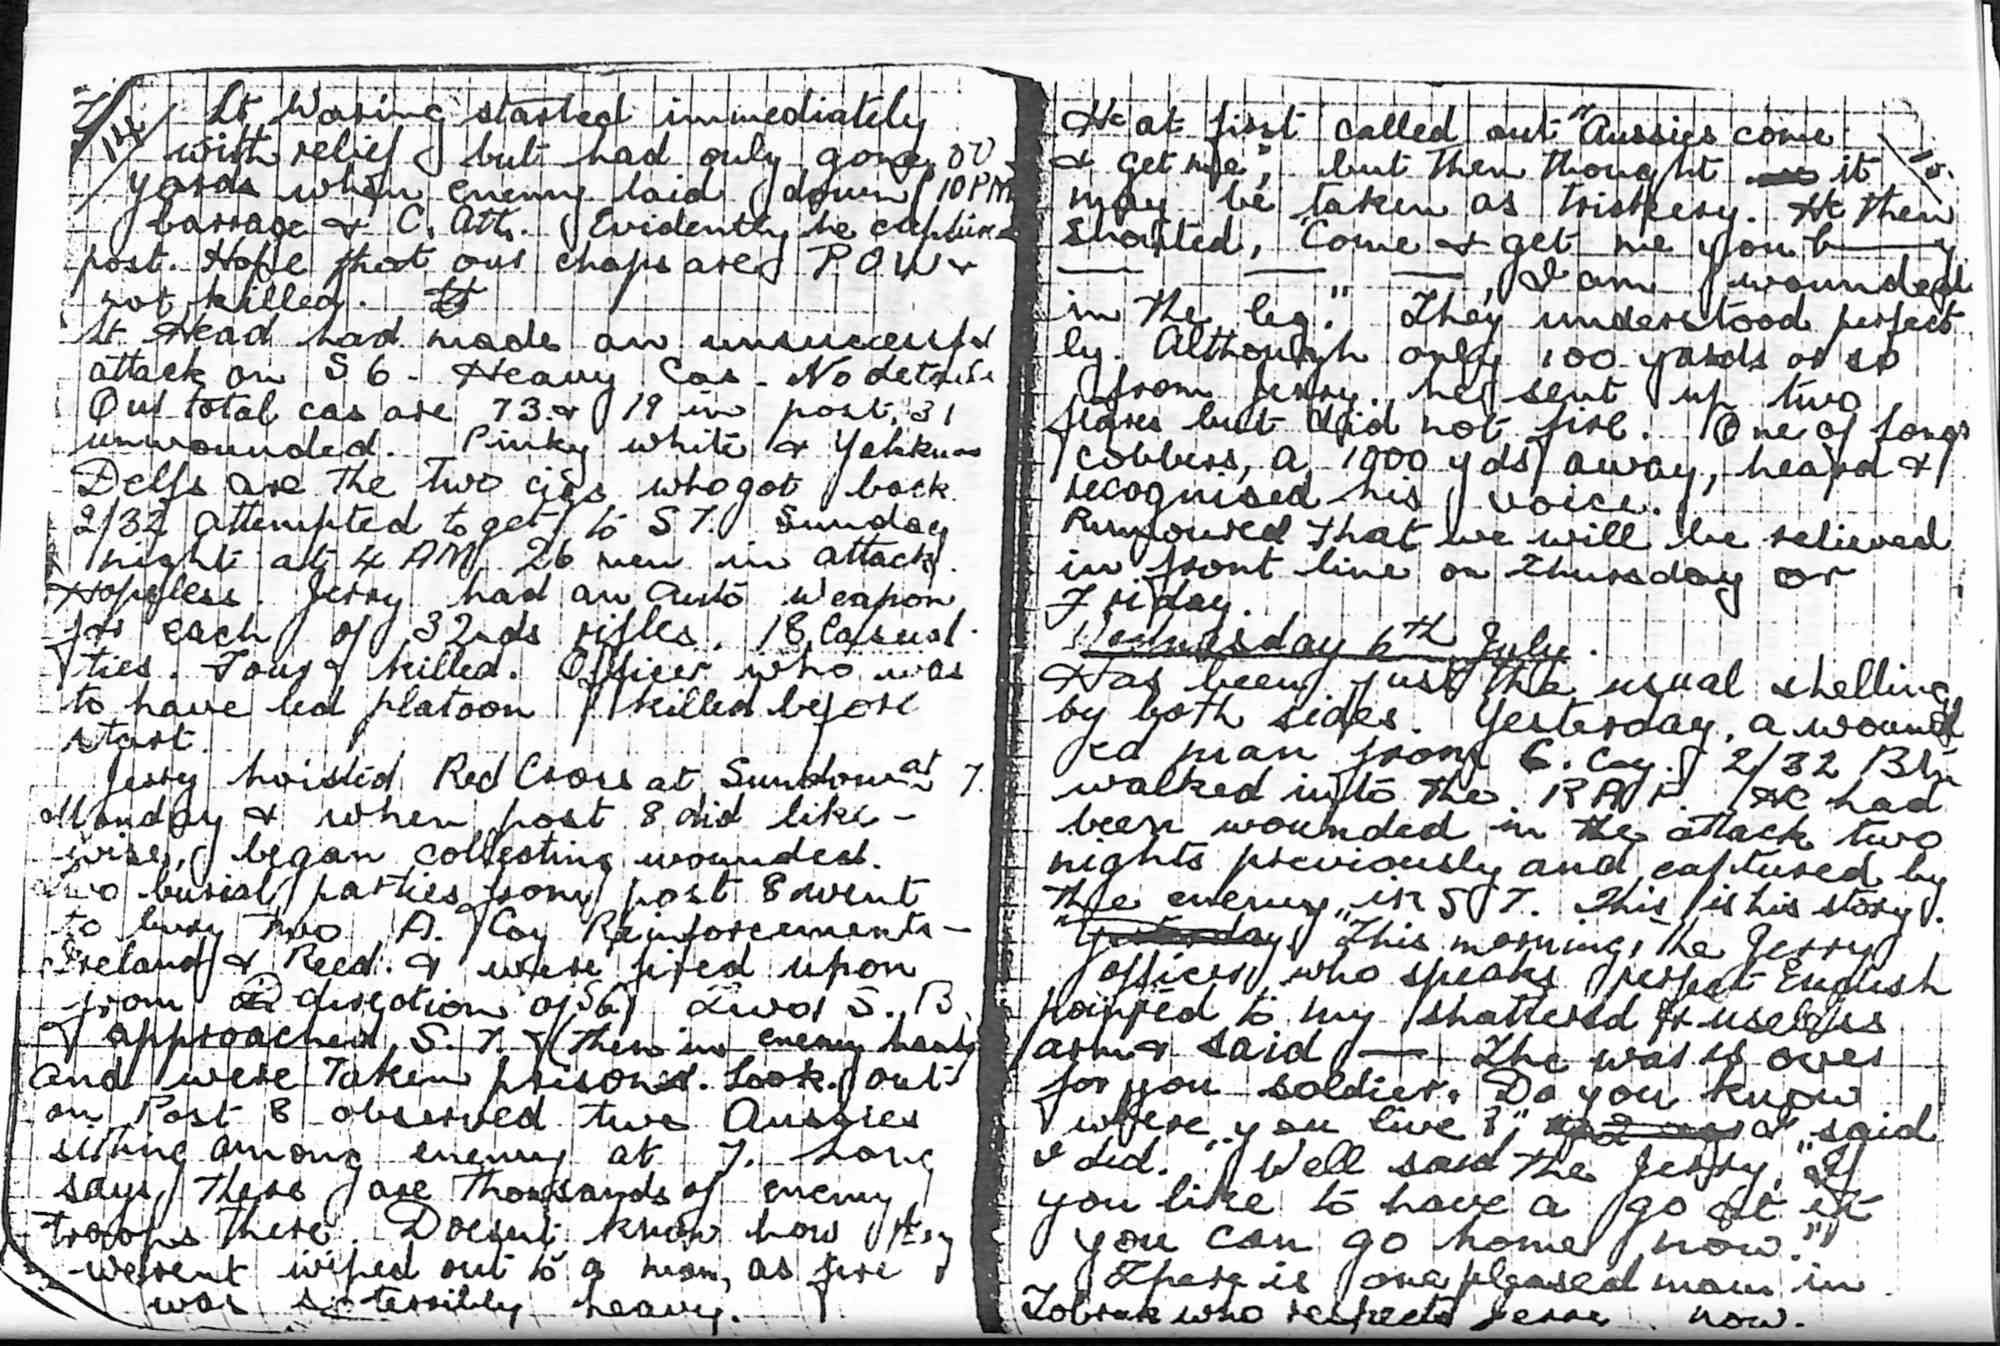 14
Lt Waring started immediately
with relief but had only gone 00
yards when enemy laid down 10PM
barrage & C. Att. Evidently he captured
post. Hope that our chaps are P O W &
not killed.
Lt Head had made an unsuccessful
attack on S6. Heavy Cas. No details
Our total cas are 73 & 19 in post, 31
unwounded. Pinky White &
Delfs are the two who got back
2/32 attempted to get to S7. Sunday
night at 4 AM 26 men in attack.
Hopeless. Jerry had an auto weapon
for each of 32nds rifles. 18 Casual-
ties. killed. Officer who was
to have led platoon killed before
start.
Jerry hoisted Red Cross at Sundown at 7.
Monday & when post 8 did like-
wise, began collecting wounded.
Two burial parties from post 8 went
to bury two A. Coy Reinforcements -
Ireland & Reed. & were fired upon
from direction of S6. Two S. B.
approached S. 7. & (then in enemy hands
and were taken prisoner. Look out
on Post 8 observed two Aussies
sitting among enemy at 7. Long
says there are thousands of enemy
troops there. Doesnt know how they
werent wiped out to a man, as fire
was so terribly heavy.
15.
He at first called out "Aussies come
& get me", but then thought it
may be taken as trickery. He then
shouted, "Come & get me you b——y
— — —, I am wounded
in the leg." They understood perfect
ly. Although only 100 yards or so
from Jerry, he sent up two
flares but did not fire. One of Longs
cobbers, a 1000 yds away, heard &
recognised his voice.
Rumoured that we will be relieved
in front line on Thursday or
Friday.
Wednesday 6th July.
Has been just the usual shelling
by both sides. Yesterday, a wound
ed man from C. Coy. 2/32 Btn
walked into the R A P. He had
been wounded in the attack two
nights previously and captured by
the enemy in S 7. This is his story.
"This morning, the Jerry
officer, who speaks perfect English
pointed to my shattered & useless
arm & said — The was is over
for you soldier. Do you know
where you live?" I said
I did. "Well said the Jerry, "If
you like to have a go at it
you can go home now.""
There is one pleased man in
Tobruk who respects Jerry now.